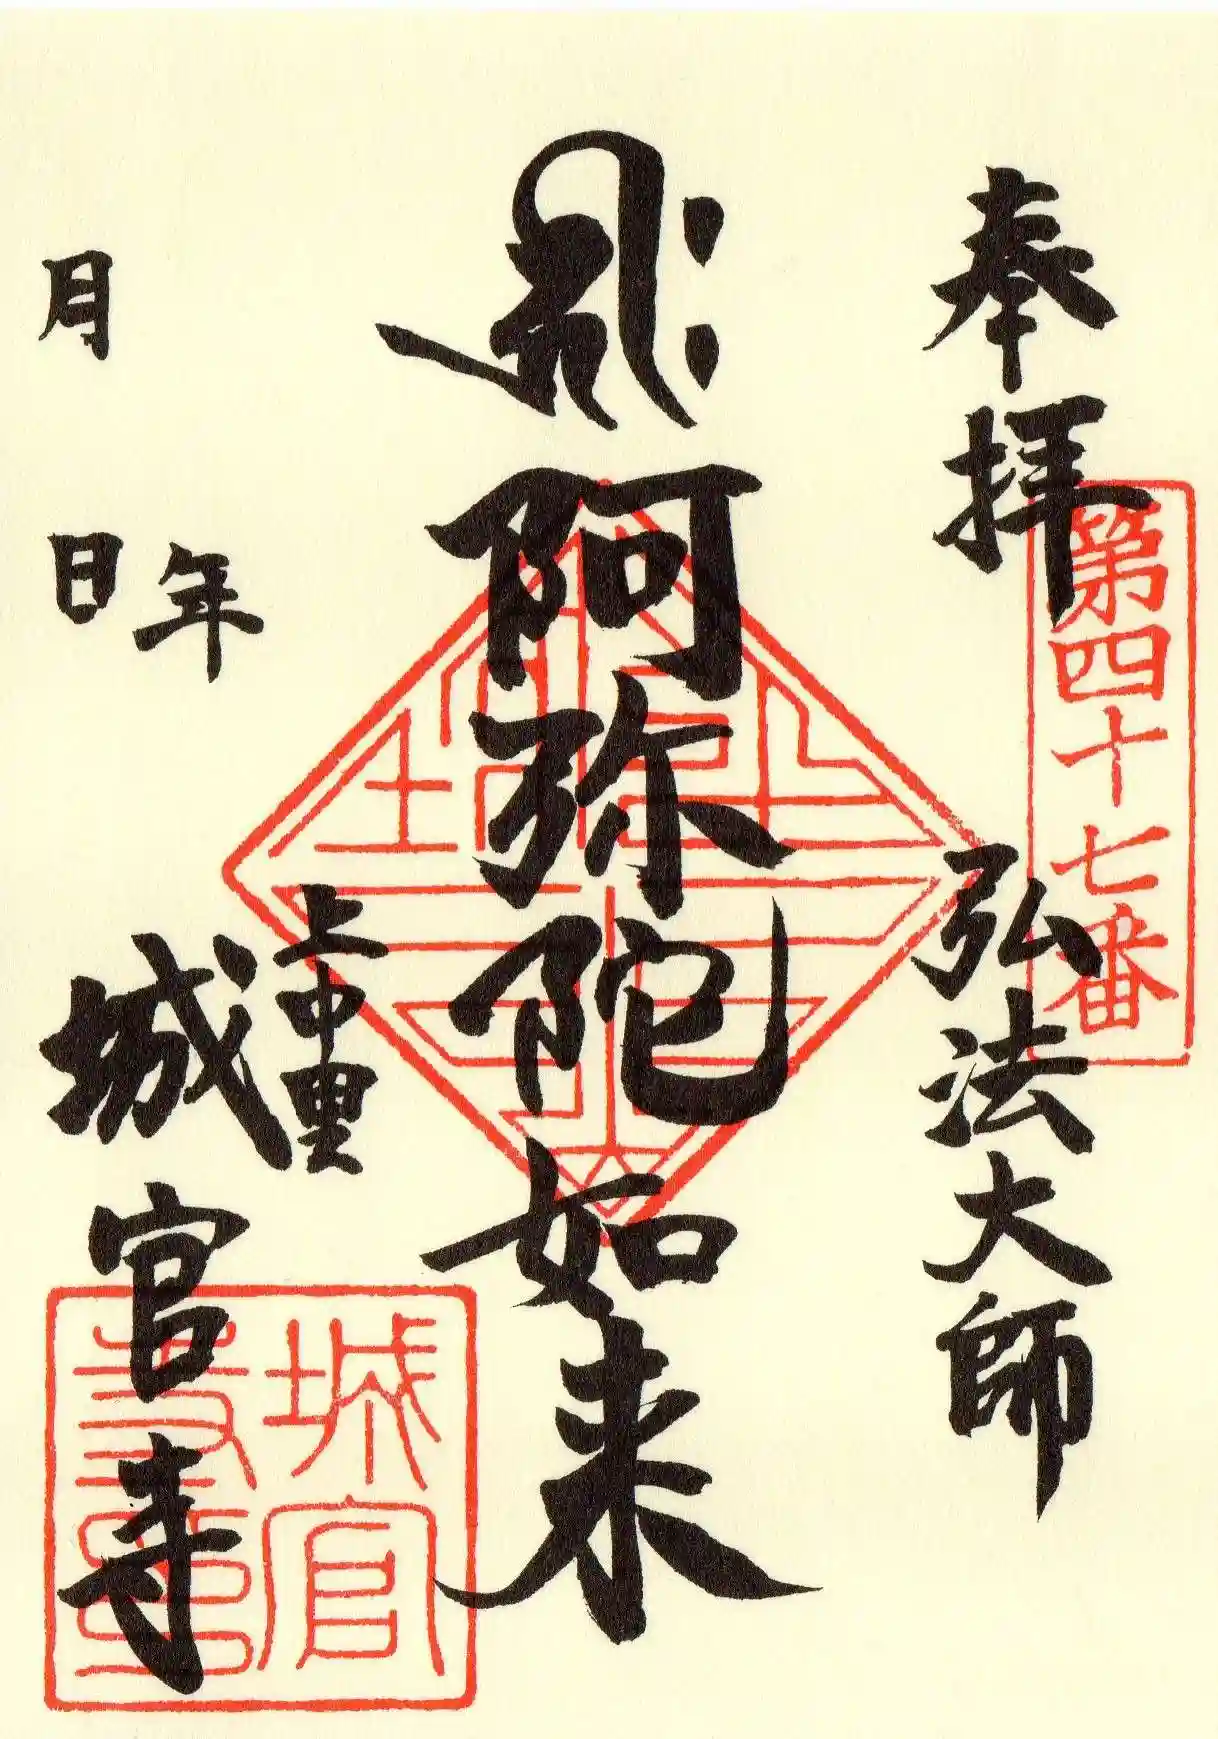 奉拝
第四十七番
弘法大師
阿弥陀如来
年
月日
上中里
城官寺
城官寺